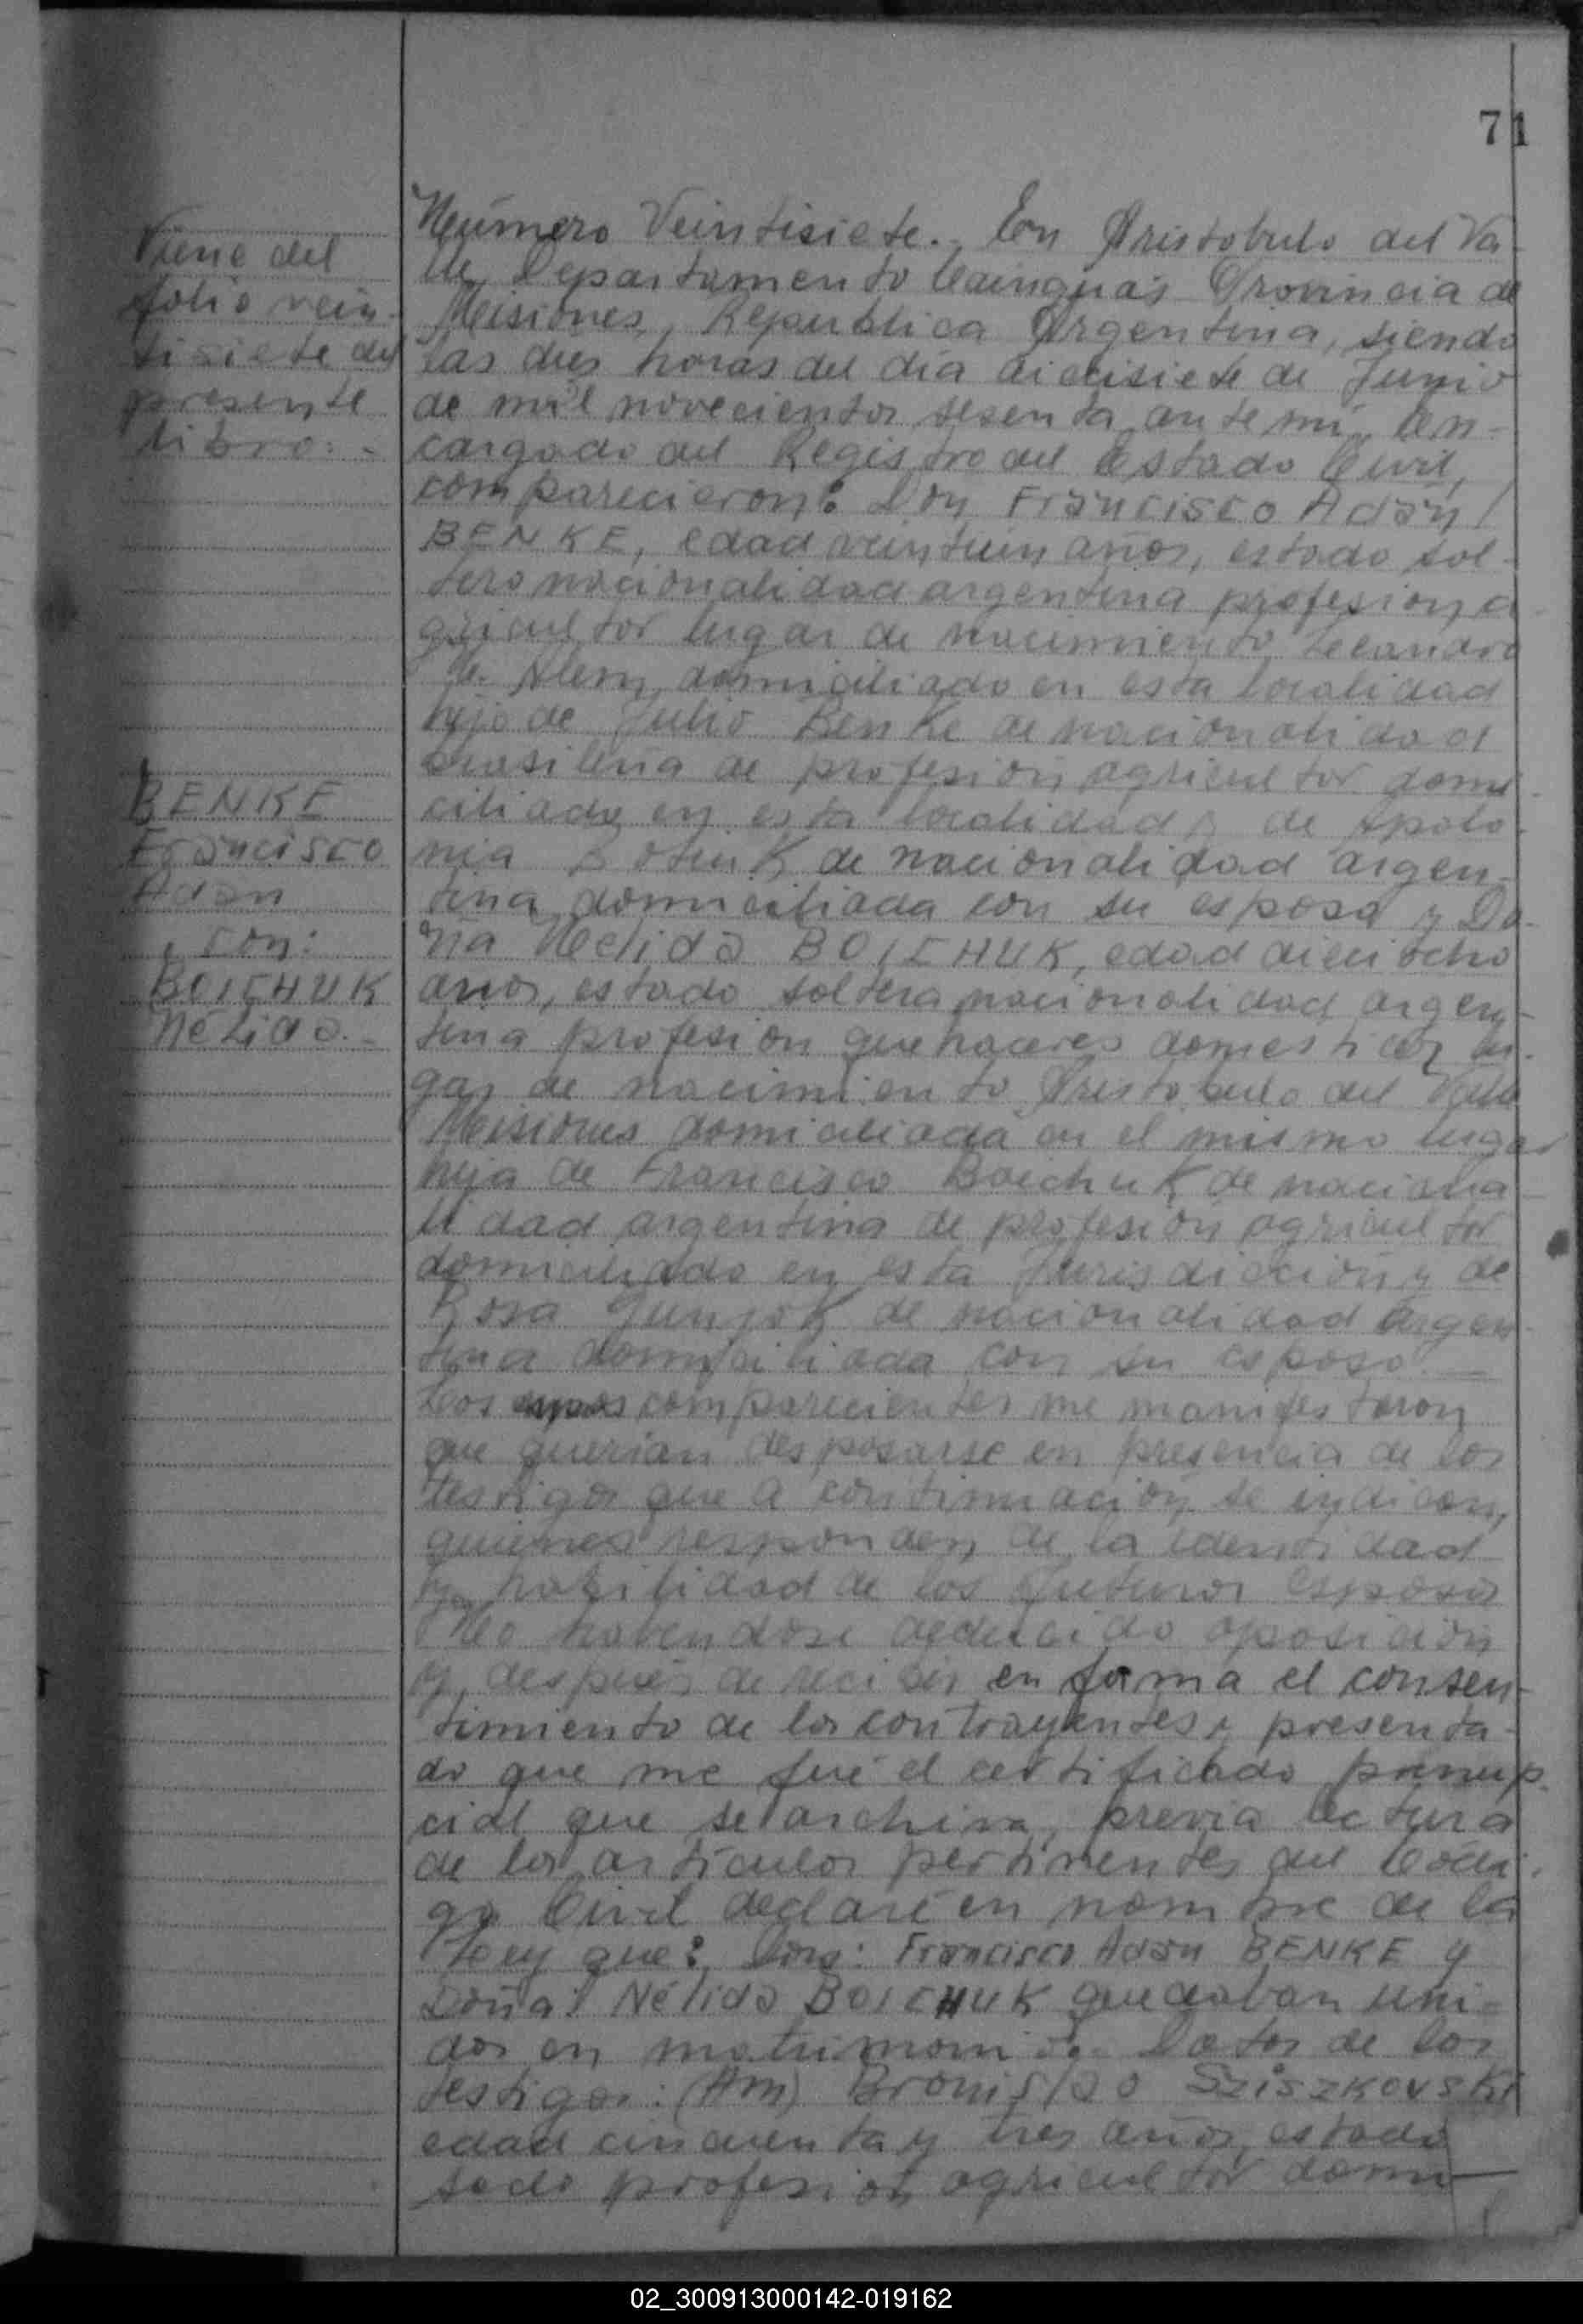 71
Número Veintisiete. En Aristobulo del Va-
lle, Departamento Cainguás Provincia de
Misiones, Republica Argentina, siendo
las dies horas del día diecisiete de Junio
de mil novecientos sesenta ante mí, En-
cargado del Registro del Estado Civil,
comparecieron: Don Francisco Adán
BENKE, edad veintiun años, estado sol-
tero nacionalidad argentina profesion a-
gricultor lugar de nacimiento Leandro
N. Alem, domiciliado en esta localidad
hijo de Julio Benke de nacionalidad
brasileña de profesión agricultor domi-
ciliado en esta localidad y de Apolo-
nia de nacionalidad argen-
tina domiciliada con su esposo y Do-
ña Nelida BOICHUK, edad dieciocho
años, estado soltera nacionalidad argen-
tina profesion quehaceres domesticos lu-
gar de nacimiento Aristobulo del Valle
Misiones domiciliada en el mismo lugar
hija de Francisco Boichuk de naciona-
lidad argentina de profesión agricultor
domiciliado en esta Jurisdicción y de
Rosa de nacionalidad argen-
tina domiciliada con su esposo
Los comparecientes me manifestaron
que querian desposarse en presencia de los
testigos que a continuación se indican,
quienes responden de la identidad
y habilidad de los futuros esposos
No habendose deducido oposición
y despues de recibir en forma el consen-
timiento de los contrayentes y presenta-
do que me fué el certificado prenup-
cial que se archiva, previa lectura
de los articulos pertinentes del Códi-
go Civil declaré en nombre de la
Ley que: Don: Francisco Adán BENKE y
Doña: Nélida BOICHUK quedaban uni-
dos en matrimonio. Datos de los
testigos: (Am) Bronislao SZISZKOVSKI
edad cincuenta y tres años, estado
sado profesion agricultor domi-
Viene del
folio vein-
tisiete del
presente
libro.-
BENKE
Francisco
Adan
con:
BOICHUK
Nélida.-
02_300913000142-019162